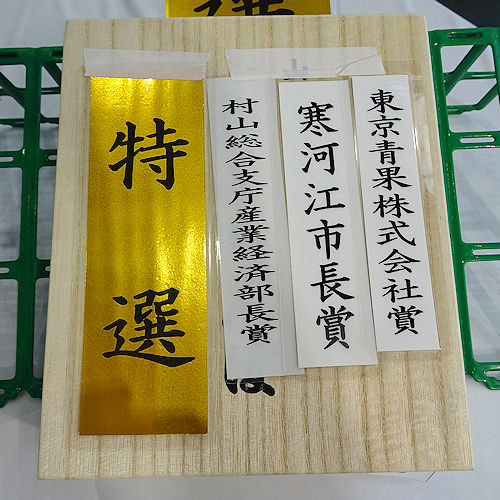 選
東京青果株式会社賞
寒河江市長賞
村山総合支庁産業経済部長賞
特選